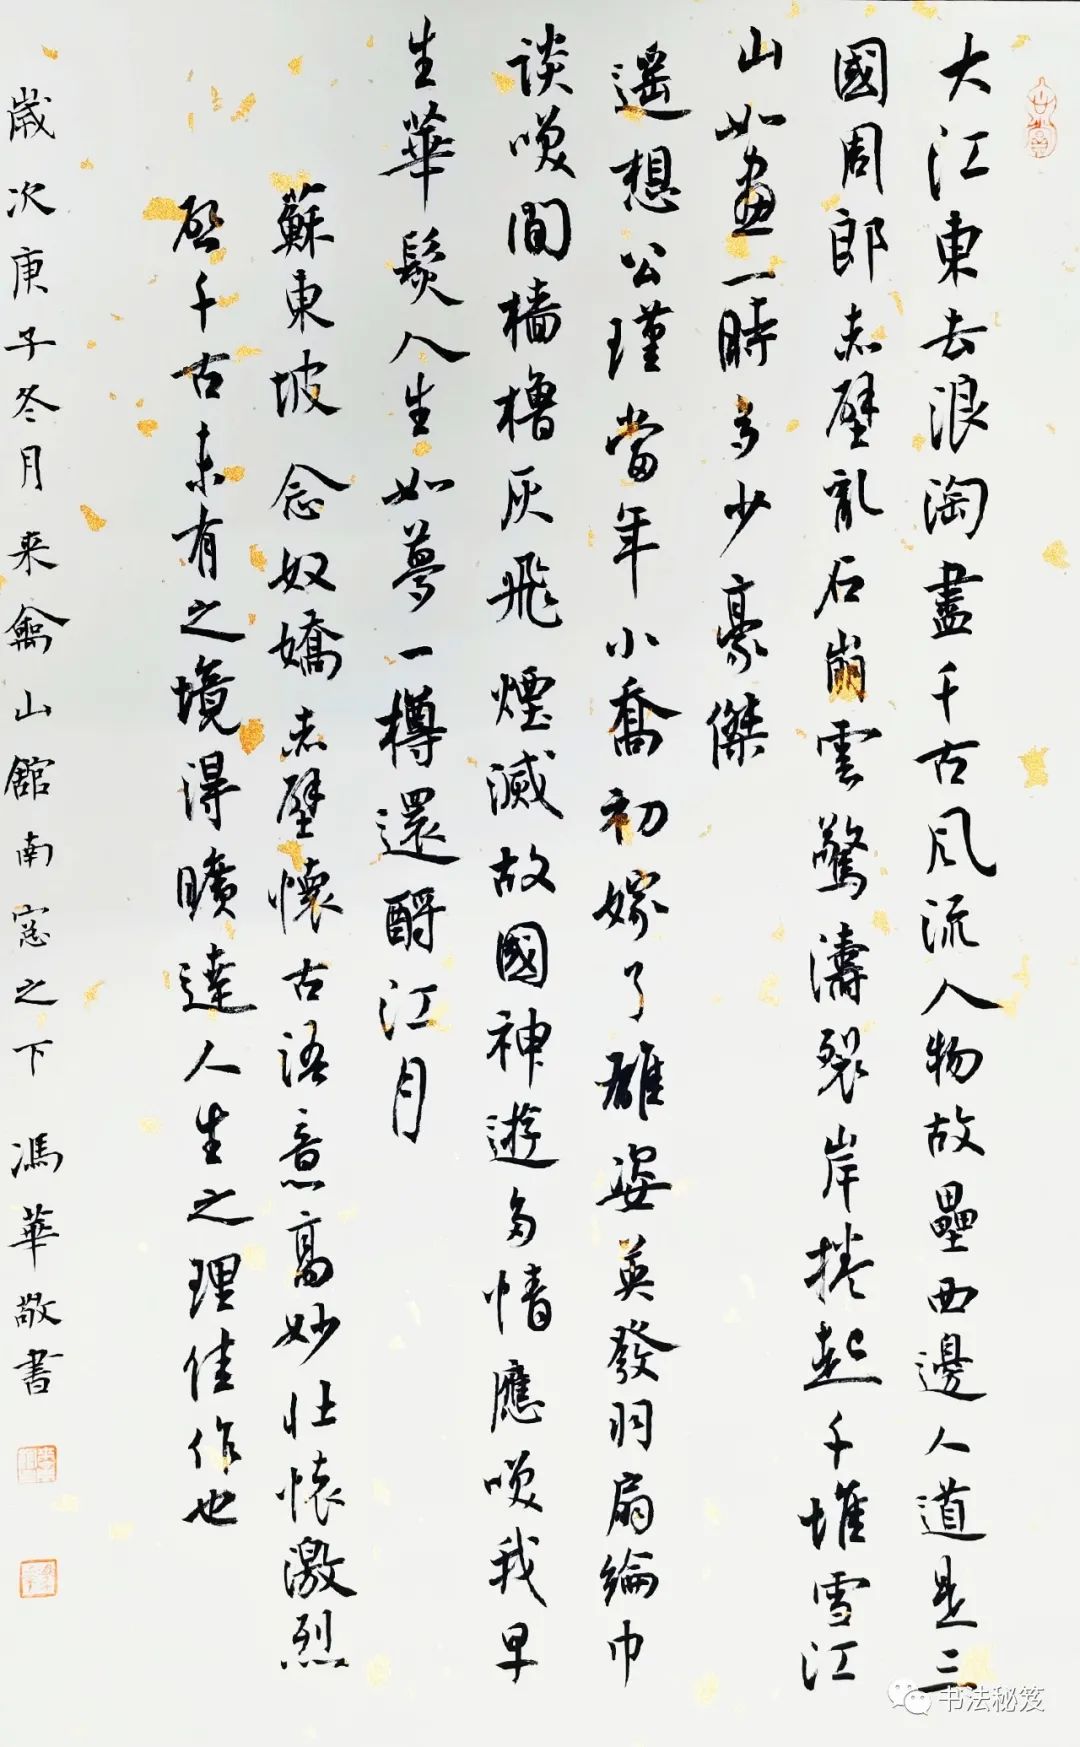 大江東去浪淘盡千古風流人物故壘西邊人道是三
國周郎赤壁亂石崩雲驚濤裂岸捲起千堆雪江
山如畫一時多少豪傑
遥想公瑾當年小喬初嫁了雄姿英發羽扇綸巾
談咲間檣櫓灰飛煙滅故國神遊多情應咲我早
生華髮人生如夢一樽還酹江月
蘇東坡 念奴嬌赤壁懷古語意高妙壯懷激烈
啟千古未有之境得曠達人生之理佳作也
歲次庚子冬月来禽山館南窓之下 馮華敬書
书法秘笈